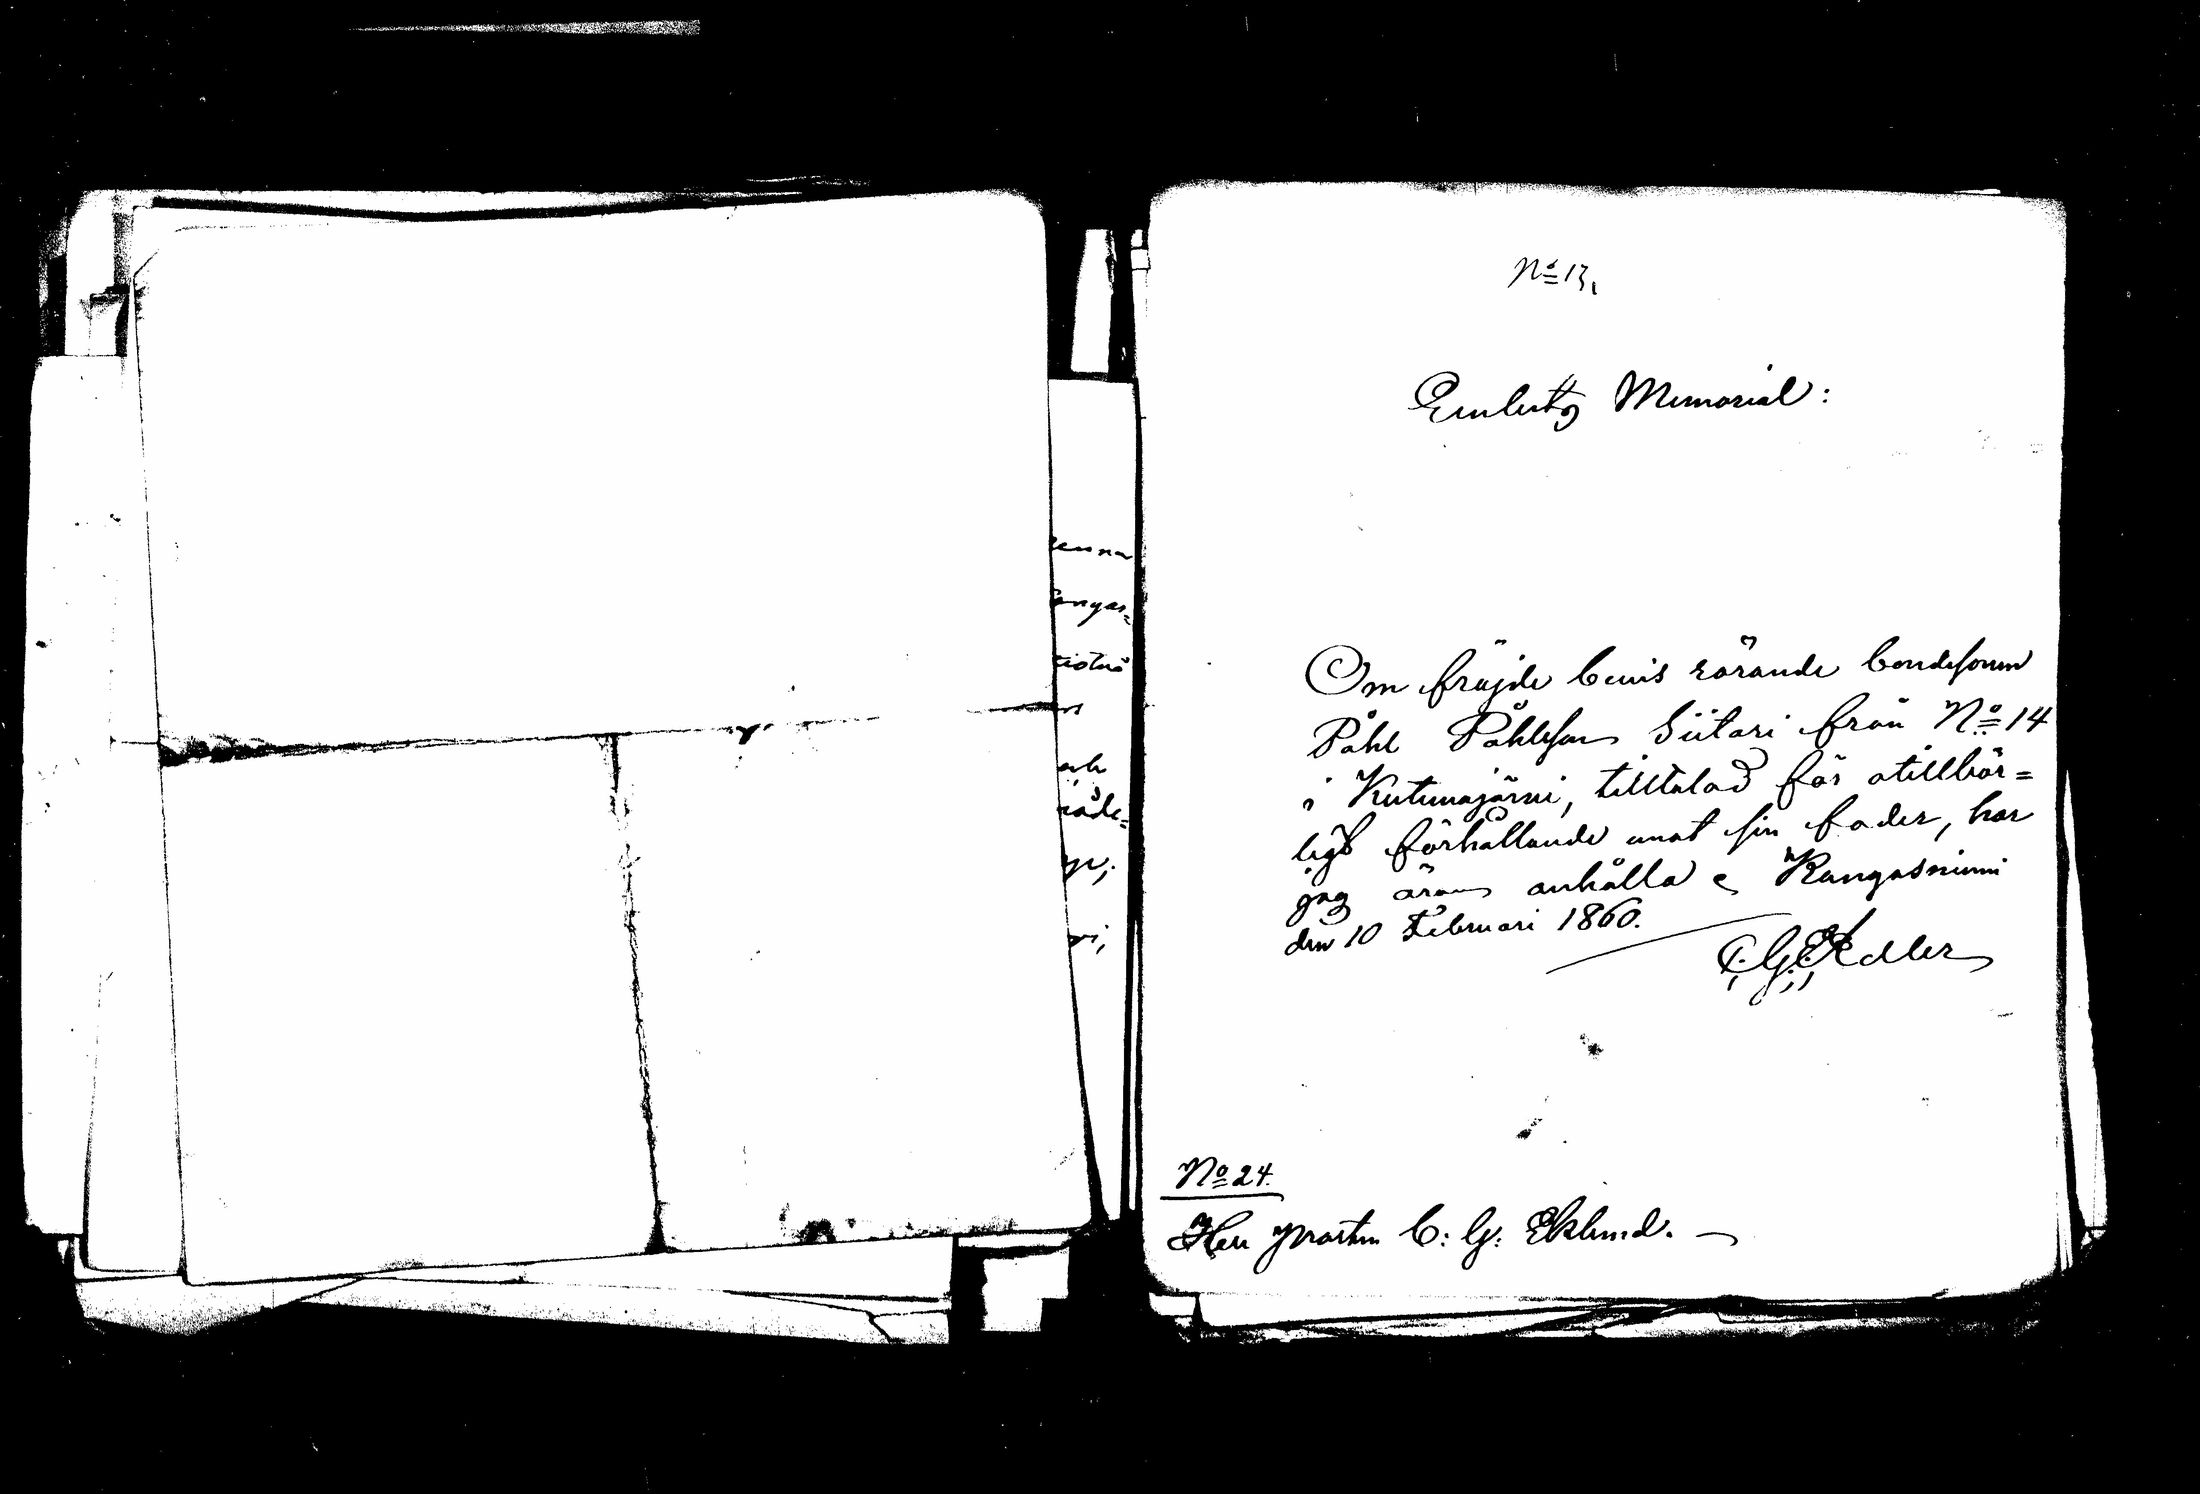 No 13,
Embets Memorial:
Om fräjde bevis rörande bondesonen
Påhl Påhlsson Siitari från No 14
i Kutumajärvi, tilltalad för otillbör=
ligt förhållande emot sin fader, har
jag äran anhålla Kangasniemi
den 10 Februari 1860.
Adler
No 24.
Herr Prosten C: G: Eklund.